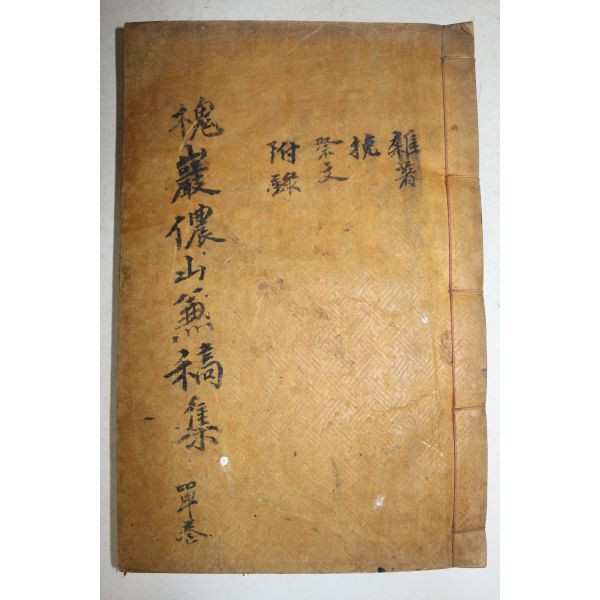 雜著
挽
祭文
附錄
槐巖儂山兼稿集 單卷